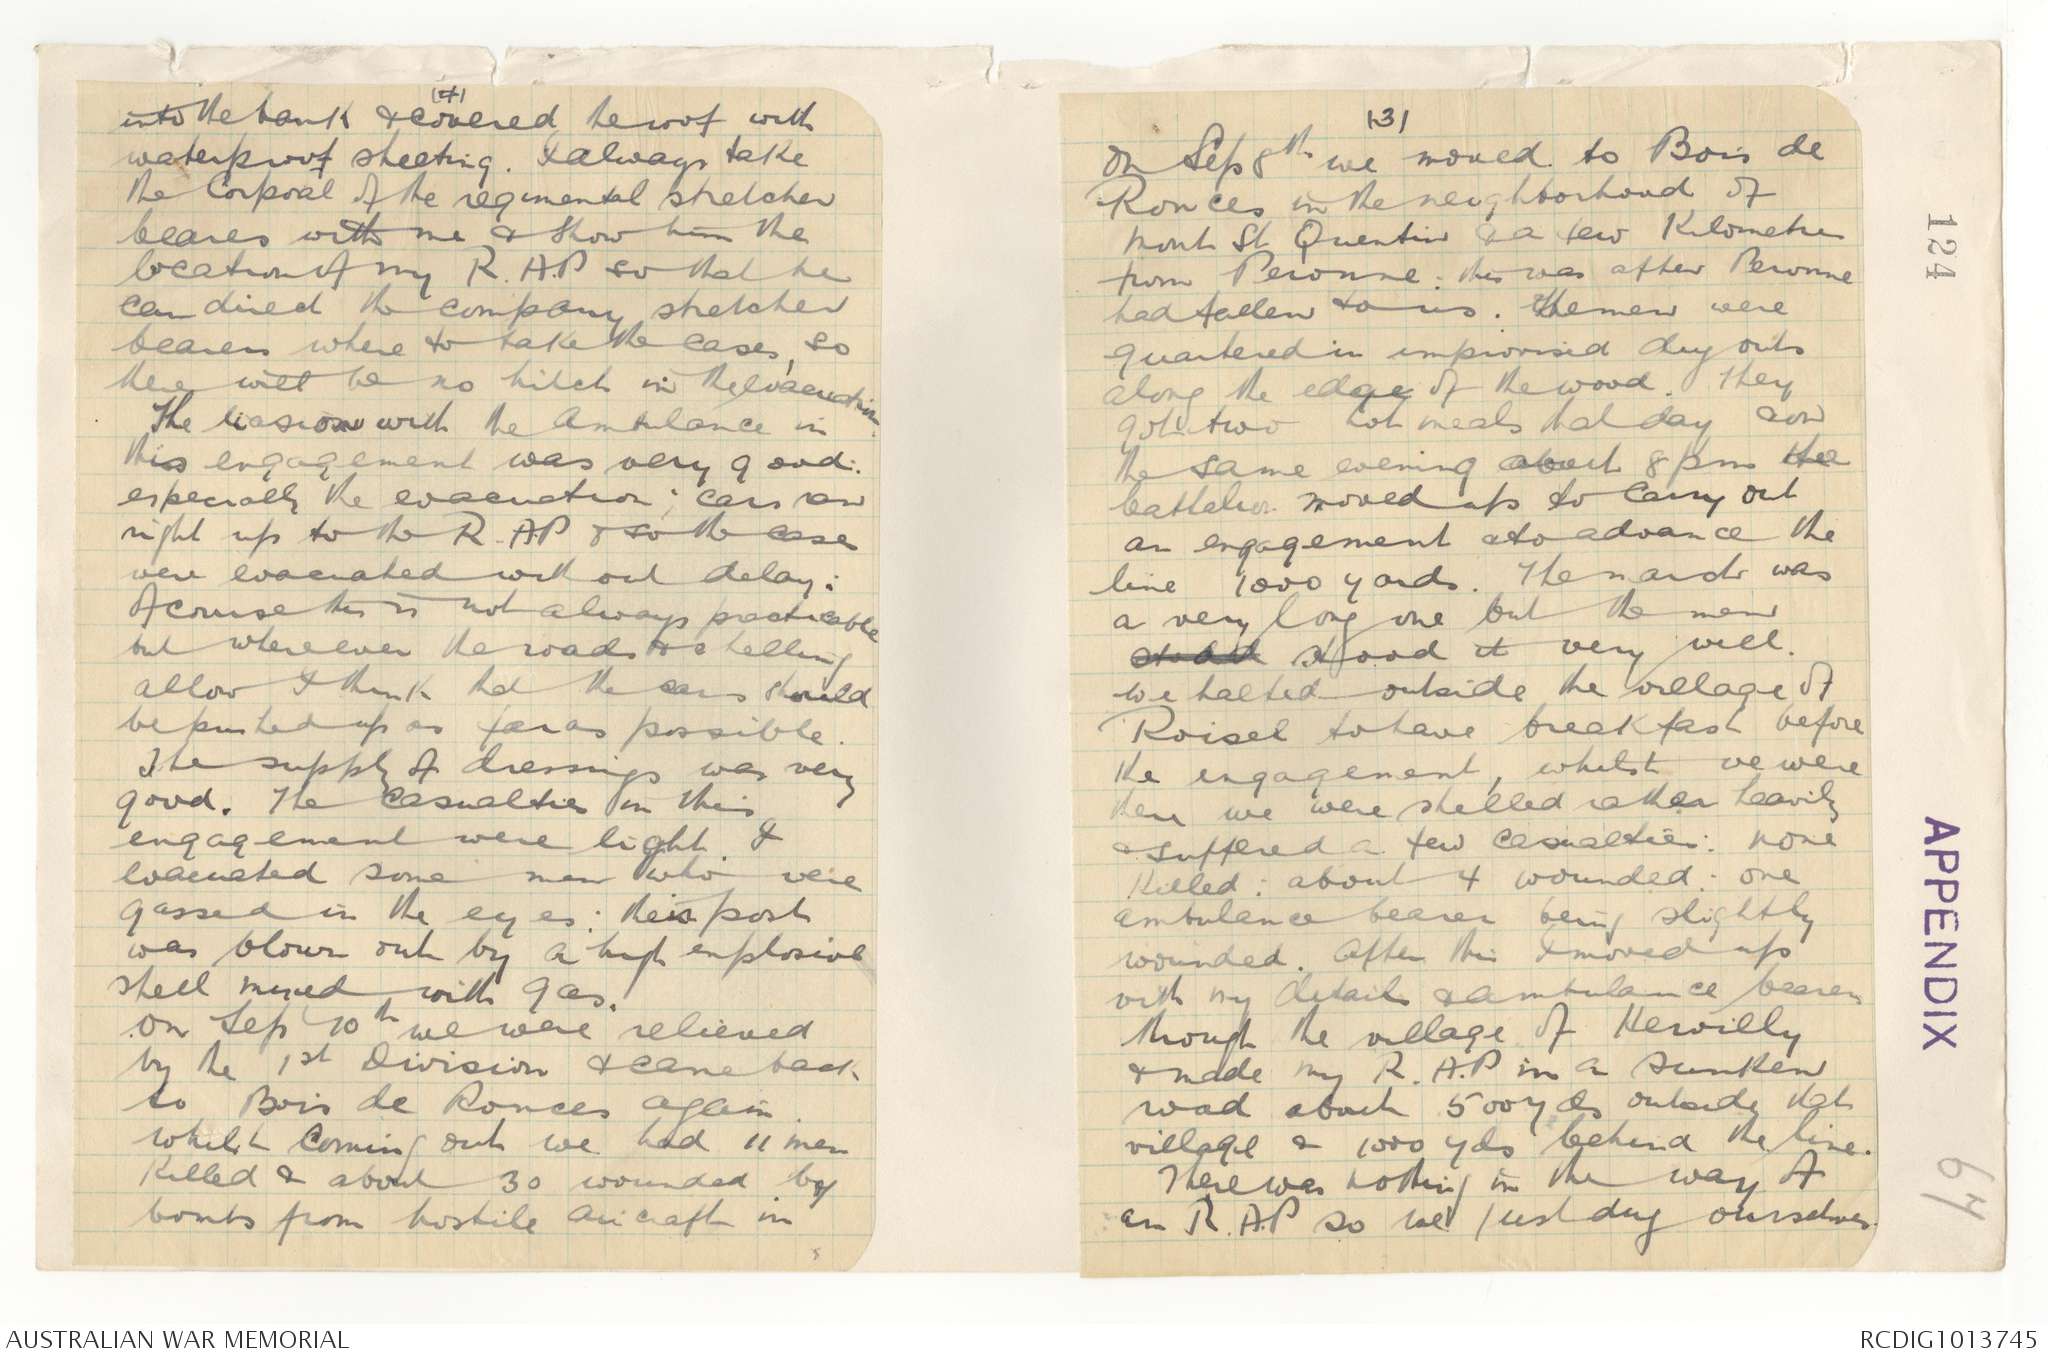 (4)
into the bank & covered the roof with
waterproof sheeting. I always take
the Corporal of the regimental stretcher
beares with me & show him the
location of my R.A.P so that he
can direct the company stretcher
bearers where to take the cases, so
there will be no hitch in the evacuation.
The liasion with the Ambulance in
this engagement was very good:
especially the evacuation; cars ran
right up to the R.A.P & so the cases
were evacuated without delay:
of course this is not always practicable
but whereever the roads & shelling
allow I think that the cars should
be pushed up as far as possible.
The supply of dressings was very
good. The casualties in this
engagement were light &
evacuated some men who were
gassed in the eyes: their post
was blown out by a high explosive
shell mixed with gas.
On Sep 10th we were relieved
by the 1st Division & came back
to Bois de Ronces again.
whilst coming out we had 11 men
killed & about 30 wounded by
bombs from hostile aircraft in
(3)
On Sep 8th we moved to Bois de
Ronces in the neighborhood of
Mont St Quentin & a few Kilometres
from Peronne: this was after Peronne
had fallen to us. The men were
quartered in improvised dug outs
along the edge of the wood. They
got two hot meals that day and
the same evening about 8 pm the
battalion moved up to carry out
an engagement & to advance the
line 1000 yards. The march was
a very long one but the men
stood stood it very well.
we halted outside the village of
Roisel to have breakfast before
the engagement, whilst we were
there we were shelled rather heavily
& suffered a few casualties: none
killed: about 4 wounded: one
ambulance bearer being slightly
wounded. After this I moved up
with my details & ambulance bearers
through the village of Hervilly
& made my R.A.P in a sunken
road about 500 yds outside that
village & 1000 yds behind the line.
There was nothing in the way of
an R.A.P so we just dug ourselves
124
APPENDIX
64
AUSTRALIAN WAR MEMORIAL
RCDIG1013745